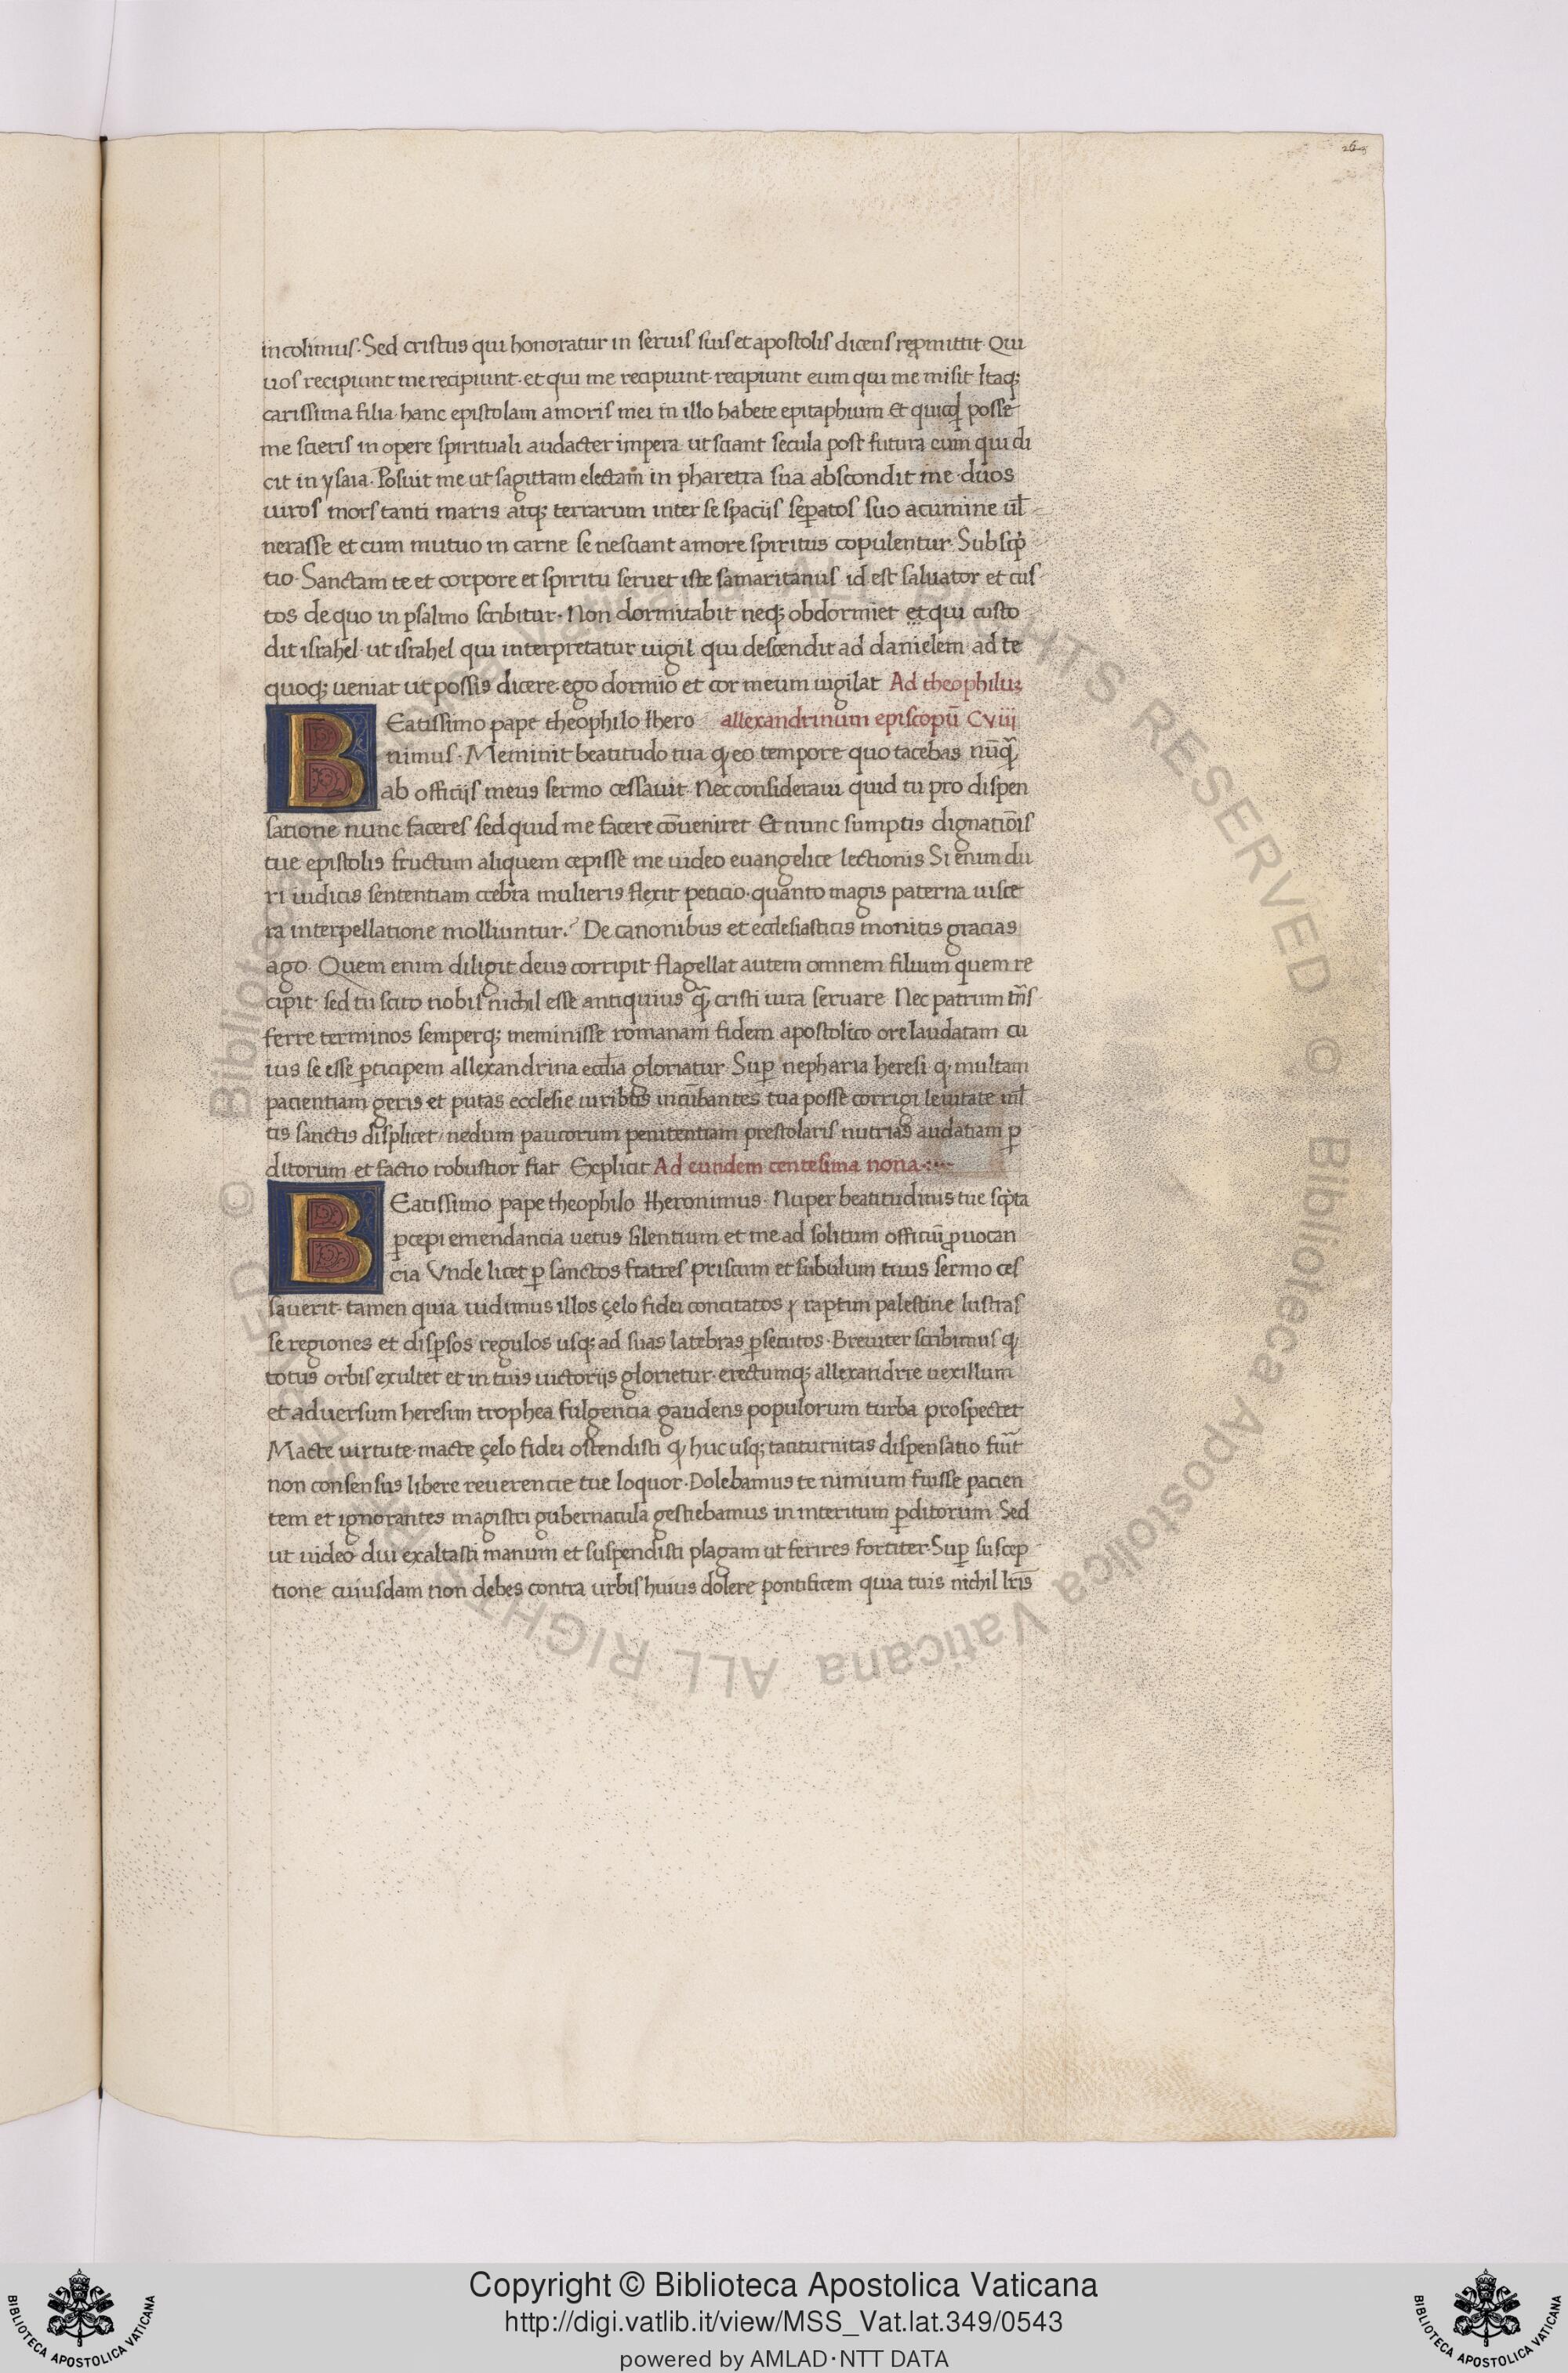 265
incolimus. Sed cristus qui honoratur in seruis suis et apostolis dicens reꝓmittit. Qui
uos recipiunt me recipiunt. et qui me recipiunt. recipiunt eum qui me misit. Itaqꝫ
carissima filia. hanc epistolam amoris mei in illo habete epitaphium. Et quicqd̛ posse
me scieris in opere spirituali audacter impera. ut sciant secula post futura eum qui di
cit in ysaia. Posuit me ut sagittam electam̄ in pharetra sua abscondit me. duos
uiros mors tanti maris atqꝫ terrarum inter se spaciis seꝑatos suo acumine ul̄
nerasse et cum mutuo in carne se nesciant amore spiritus copulentur. Subscp̛
tio. Sanctam te et corpore et spiritu seruet iste samaritanus id est saluator et cus
tos de quo in psalmo scribitur. Non dormitabit neqꝫ obdormiet et qui custo
dit israhel. ut israhel qui interpretatur uigil qui descendit ad danielem. ad te
quoqꝫ ueniat ut possis dicere. ego dormio et cor meum uigilat. Ad theophiluꝫ
allexandrinum episcopū Cviii
BEatissimo pape theophilo Ihero
nimus. Meminit beatitudo tua ꝙ eo tempore quo tacebas nūqꝫ̄
ab officiis meus sermo cessauit. Nec consideraui quid tu pro dispen
satione nunc faceres sed quid me facere cōueniret. Et nunc sumptis dignatiōis
tue epistolis fructum aliquem cepisse me uideo euangelice lectionis Si enim du
ri iudicis sententiam crebra mulieris flexit peticio. quanto magis paterna uisce
ra interpellatione molliuntur. De canonibus et ecclesiasticis monitis gracias
ago. Quem enim diligit deus corripit flagellat autem omnem filium quem re
cipit. sed tu scito nobis nichil esse antiquius qꝫ̄ cristi iura seruare. Nec patrum tn̄s
ferre terminos semperqꝫ meminisse romanam fidem apostolico ore laudatam cu
ius se esse ꝑticipem allexandrina eccl̄ia gloriatur. Suꝑ nepharia heresi ꝙ multam
pacientiam geris et putas ecclesie uiribus incūbantes tua posse corrigi leuitate ml̄
tis sanctis displicet. nedum paucorum penitentiam prestolaris nutrias audatiam ꝑ
ditorum et factio robustior fiat. Explicit Ad eundem centesima nona
BEatissimo pape theophilo Iheronimus. Nuper beatitudinis tue scp̛ta
ꝑcepi emendancia uetus silentium et me ad solitum officiū ꝓuocan
cia. Vnde licet ꝑ sanctos fratres priscum et subulum tuus sermo ces
sauerit. tamen quia uidimus illos çelo fidei concitatos ⁊ raptim palestine lustras
se regiones et disꝑsos regulos usqꝫ ad suas latebras ꝑsecutos. Breuiter scribimus ꝙ
totus orbis exultet et in tuis uictoriis glorietur. erectumqꝫ allexandrie uexillum
et aduersum heresim trophea fulgencia gaudens populorum turba prospectet
Macte uirtute. macte çelo fidei ostendisti ꝙ huc usqꝫ taciturnitas dispensatio fuit̄
non consensus libere reuerencie tue loquor. Dolebamus te nimium fuisse pacien
tem et ignorantes magistri gubernacula gestiebamus in interitum ꝑditorum. Sed
ut uideo diu exaltasti manum et suspendisti plagam ut ferires fortiter. Suꝑ suscep
tione cuiusdam non debes contra urbis huius dolere pontificem quia tuis nichil lrīs
© Biblioteca Apostolica Vaticana ALL RIGHTS RESERVED
Copyright © Biblioteca Apostolica Vaticana
http://digi.vatlib.it/view/MSS_Vat.lat.349/0543
powered by AMLAD·NTT DATA
BIBLIOTECA APOSTOLICA VATICANA
BIBLIOTECA APOSTOLICA VATICANA